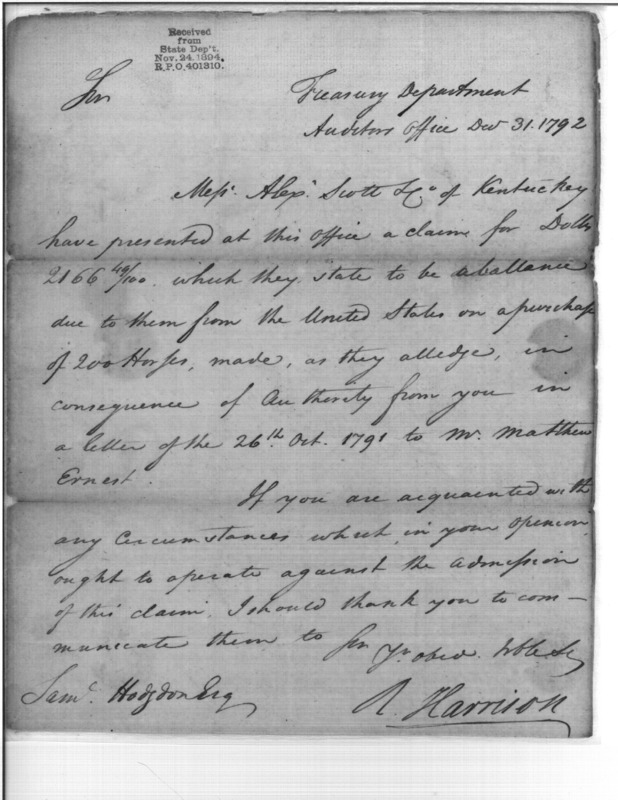 Received
from
State Dep't.
Nov. 24. 1894.
R.P.O. 401310.
Sir
Treasury Department
Auditors Office Decr 31. 1792
Messs. Alexr. Scott & Co of Kentuckey
have presented at this office a claim for Dolls
2166 40/100. which they state to be a ballance
due to them from the United States on a purchase
of 200 Horses, made, as they alledge, in
consequence of Authority from you in
a letter of the 26th. Oct. 1791 to Mr. Matthew
Ernest.
If you are acquainted with
any Circumstances which, in your opinion,
ought to operate against the admission
of this claim, I should thank you to com-
municate them to Sir Yr. obed. Hble St
Saml. Hodgdon Esq
R. Harrison